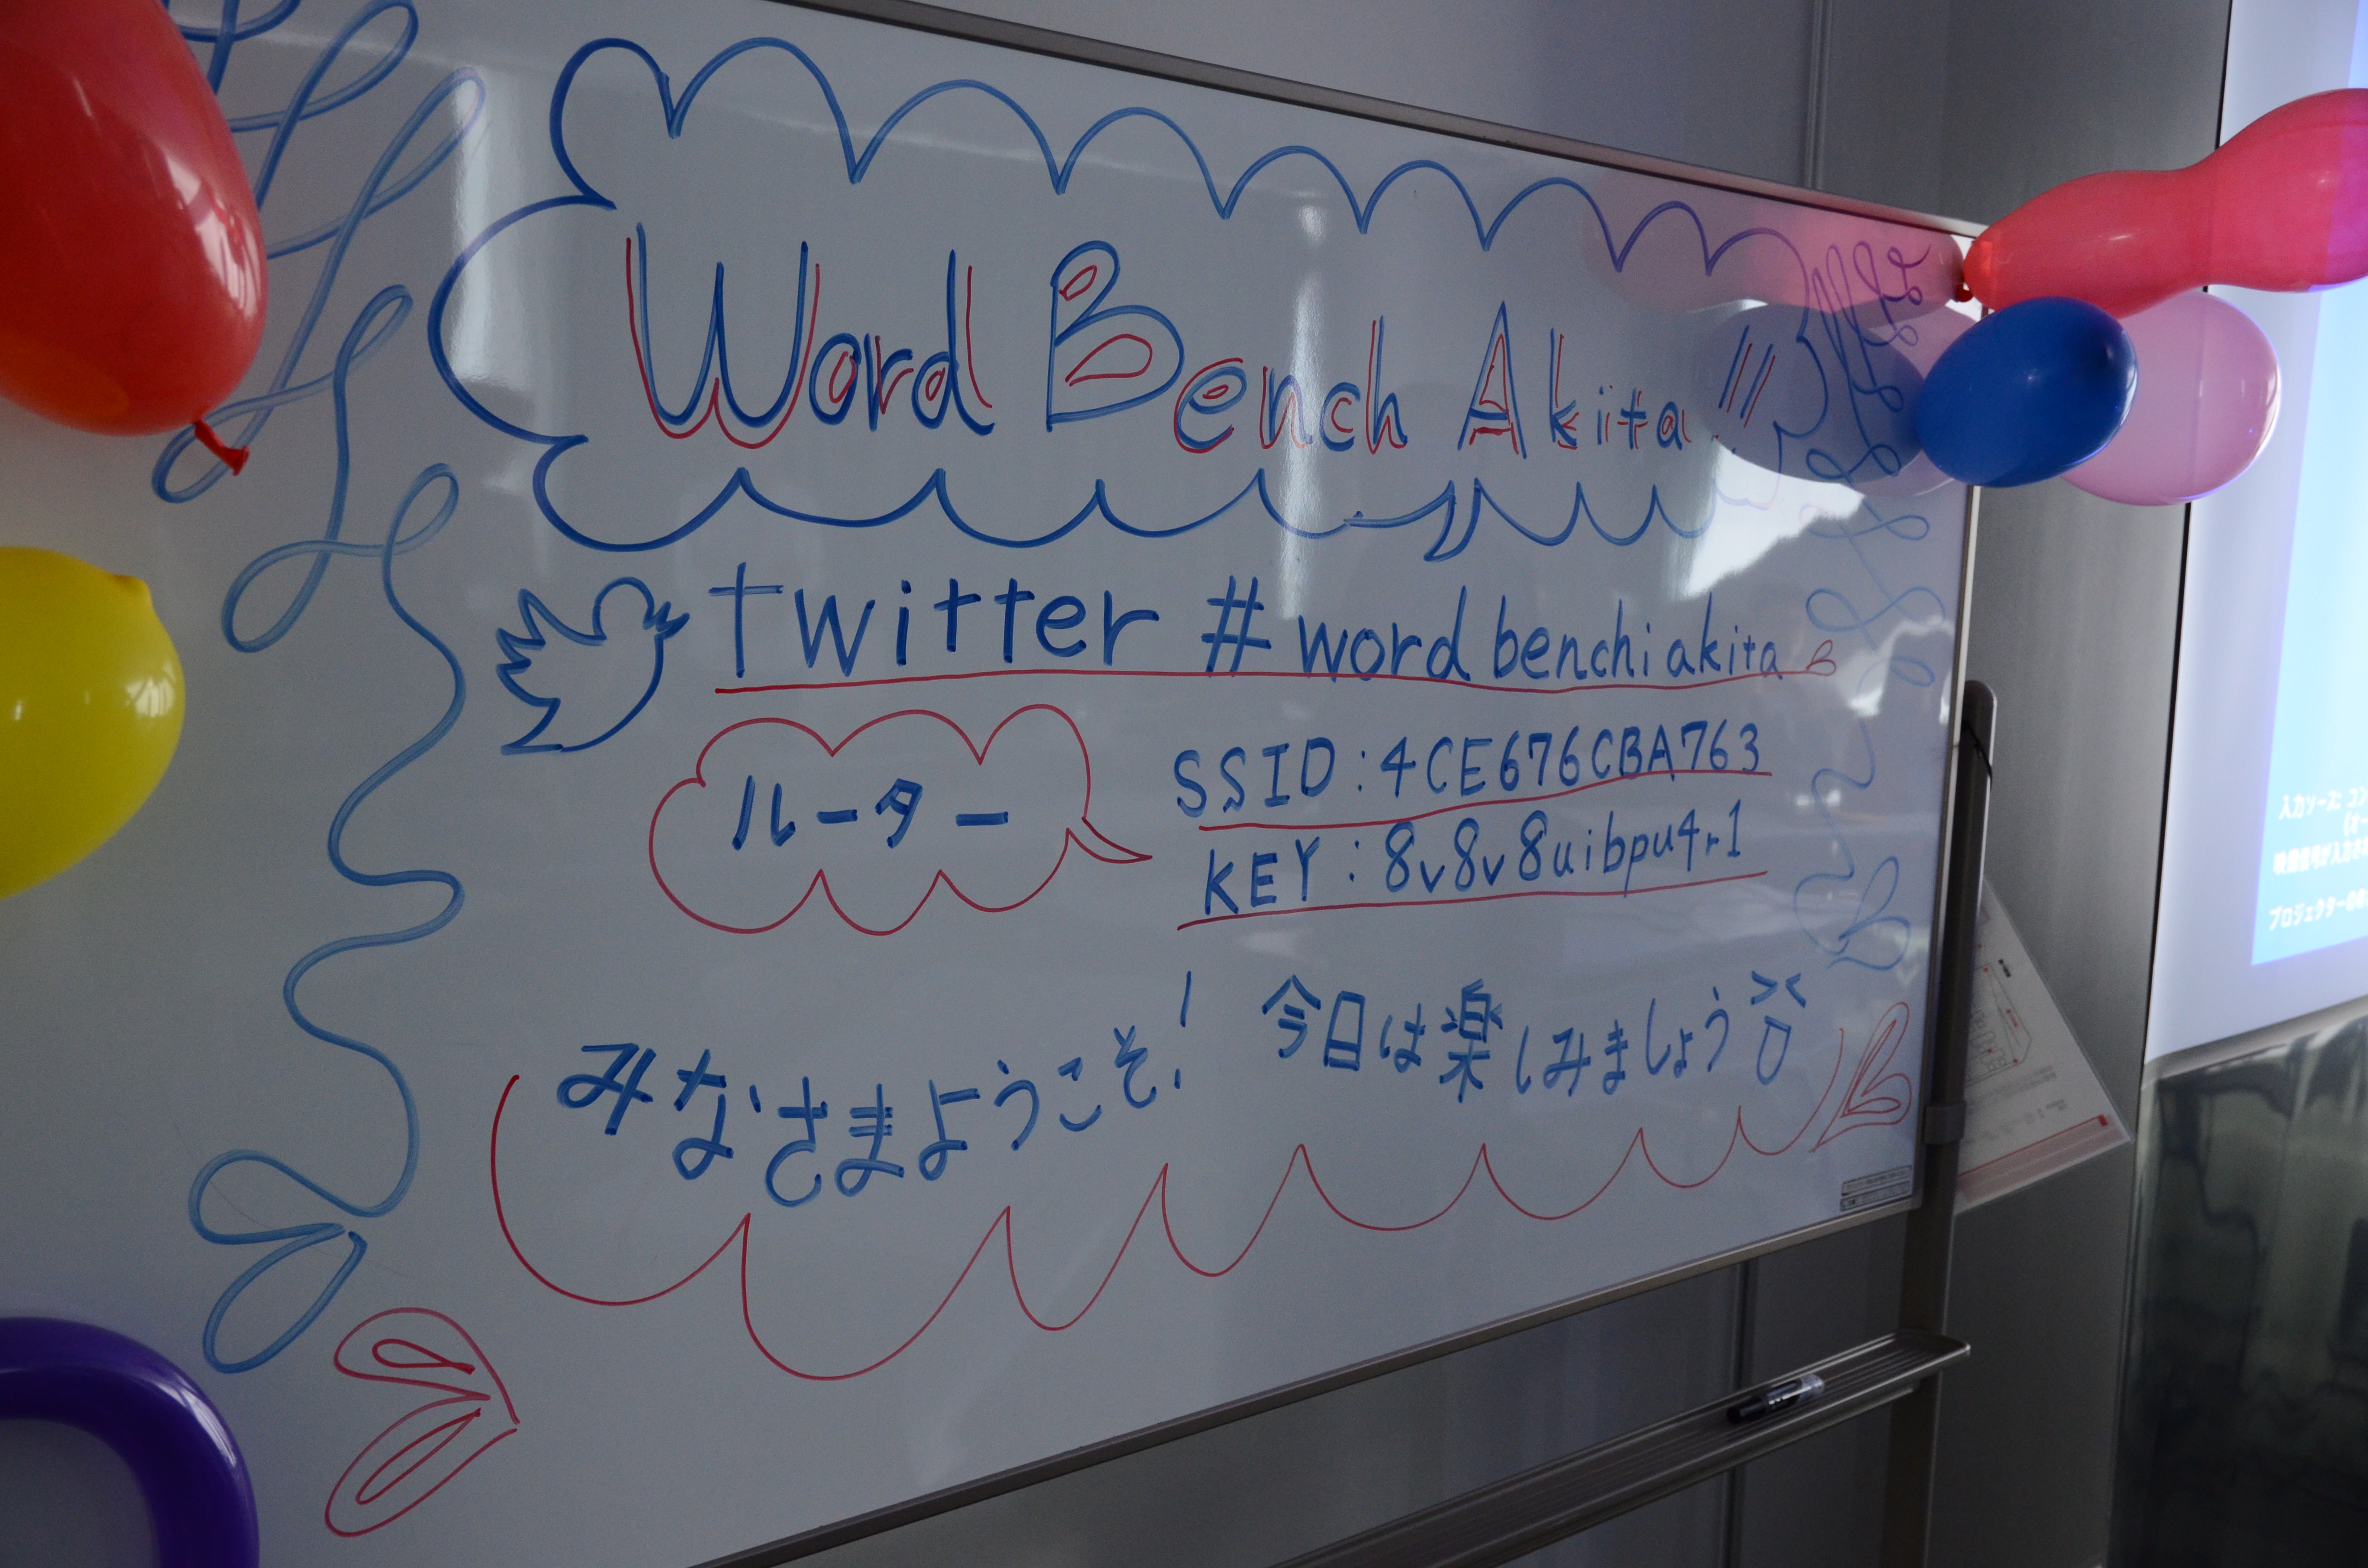 Word Bench Akita!!!
twitter #wordbenchiakita
ルーター
SSID:4CE676CBA763
KEY:8v8v8uibpu4r1
みなさまようこそ! 今日は楽しみましょう
入力ソース: コン
映像信号が入力され
プロジェクターの